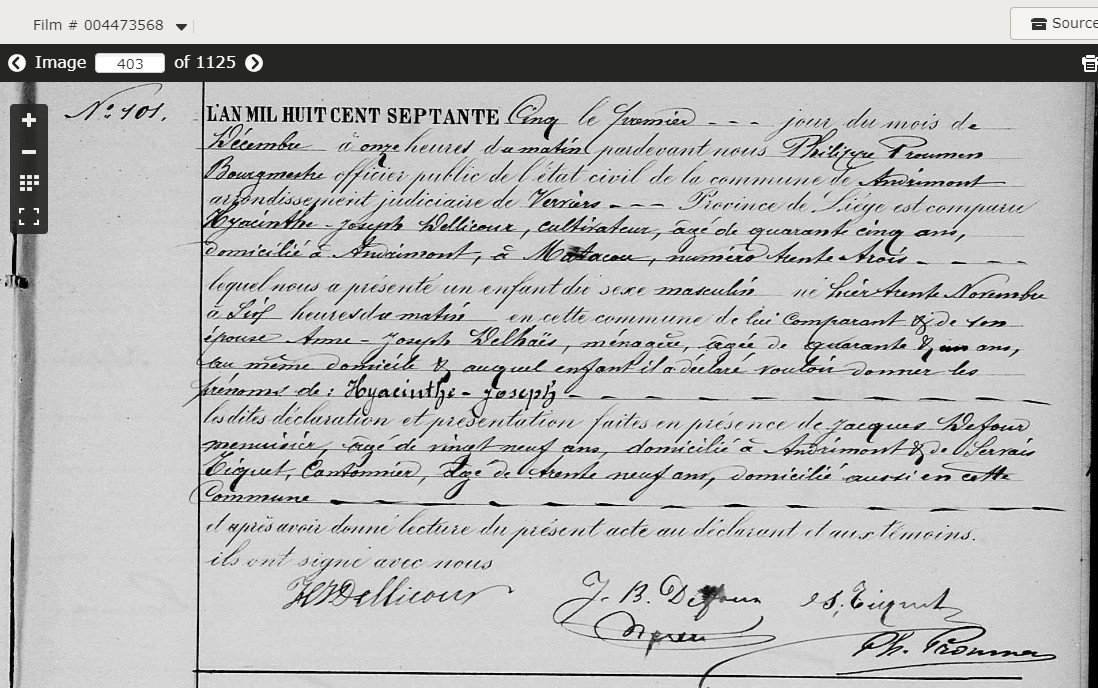 Film # 004473568
Source
Image 403 of 1125
Nº 101.
L'AN MIL HUIT CENT SEPTANTE Cinq le premier --- jour du mois de
Décembre à onze heures du matin, pardevant nous Philippe Proumen
Bourgmestre officier public de l'état civil de la commune de Andrimont
arrondissement judiciaire de Verviers --- Province de Liége est comparu
Hyacinthe-Joseph Dellicour, cultivateur, âgé de quarante cinq ans,
domicilié à Andrimont, à , numéro trente trois - - - - -
lequel nous a présenté un enfant du sexe masculin né hier trente Novembre
à Sept heures du matin en cette commune de lui Comparant & de son
épouse Anne-Joseph Delhaes, ménagère, agée de quarante & un ans,
au même domicile & auquel enfant il a déclaré vouloir donner les
prénoms de : Hyacinthe-Joseph -
lesdites déclaration et présentation faites en présence de Jacques Defour
menuisier, âgé de vingt neuf ans, domicilié à Andrimont & de Servais
Tiquet, Cantonnier, âgé de trente neuf ans, domicilié aussi en cette
Commune
et après avoir donné lecture du présent acte au déclarant et aux témoins.
ils ont signé avec nous
HJDellicour
J. B. Defour
S. Tiquet
Ph. Proumen